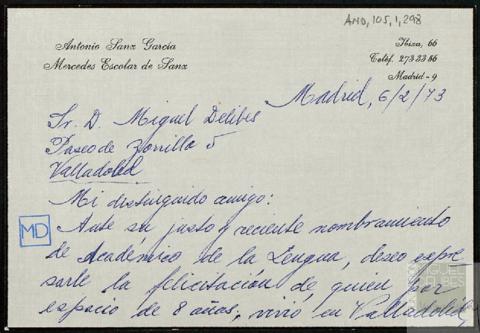 AMD, 105, 1, 298
Antonio Sanz García
Mercedes Escolar de Sanz
Ibiza, 66
Teléf. 273 23 86
Madrid - 9
Madrid, 6/2/73
Sr. D. Miguel Delibes
Paseo de Zorrilla 5
Valladolid
Mi distinguido amigo:
MD
Ante su justo y reciente nombramiento
de Académico de la Lengua, deseo expre
sarle la felicitación de quien por
espacio de 8 años, vivió en Valladolid,
MIGUEL
DELIBES